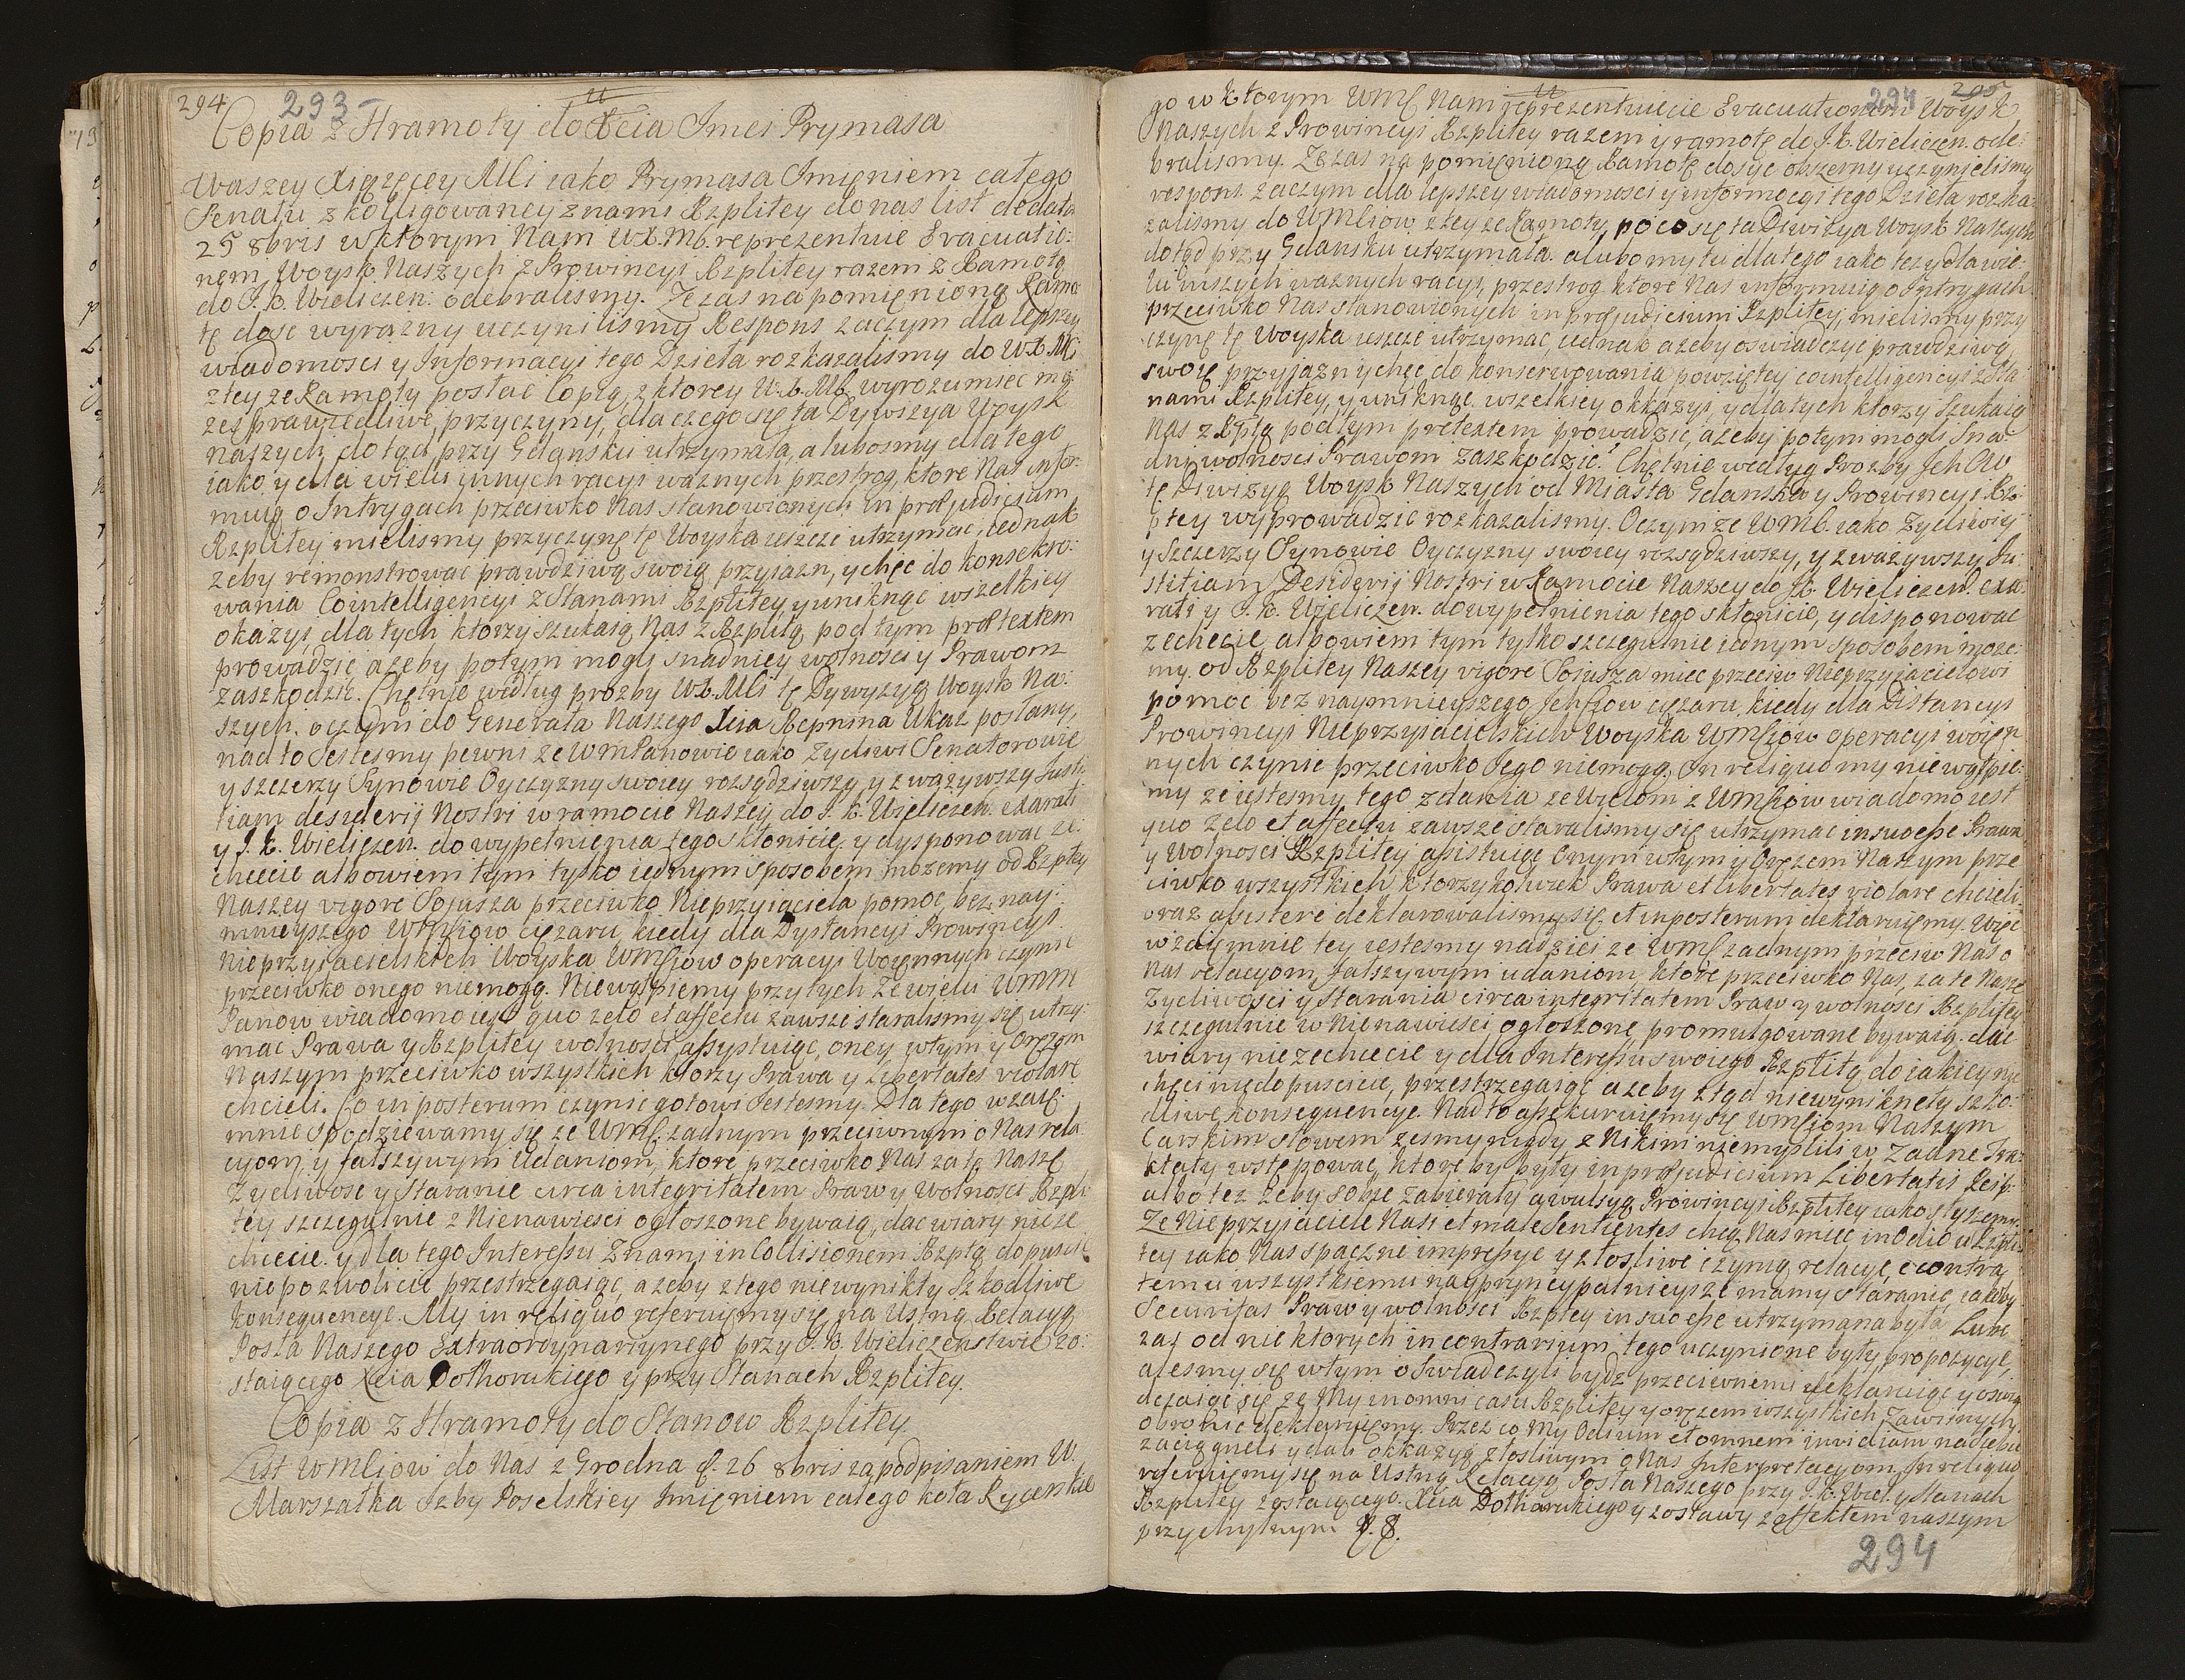 294
293
Copia z Hramoty do Xcia Jmci Prymasa
Waszey Xiążęcey Mści iako Prymasa Imięniem całego
Senatu zkolligowaney z nami Rzplitey do nas list de data
25 8bris w ktorym Nam WX.Mć. reprezentuie Evacuatio:
nem Woysk Naszych z Prowincyi Rzplitey razem z Ramotą
do J. K. Wieliczen: odebralismy. Ze zas na pomięnioną Ramo
tę dosc wyrazny uczynilismy Respons zaczym dla lepszey
wiadomosci y Informacyi tego Dzieła rozkazalismy do WX Mći
z tey ze Ramoty posłac Copią, z ktorey W.X.Mć. wyrozumiec mo
zes prawiedliwe przyczyny, dla czego się ta Dywizya Woysk
naszych dotąd przy Gdansku utrzymała, a lubosmy dla tego
iako y dla wielu innych racyi waznych przestrog, ktore Nas infor:
muią o Intrygach przeciwko Nas stanowionych in præjudicium
Rzplitey mielismy przyczynę te Woyska ieszcze utrzymac, iednak
zeby remonstrowac prawdziwą swoią przyiazn, y chęc do konserwo:
wania Cointelligencyi z Stanami Rzplitey y uniknąc wszelkiey
okazyi, dla tych ktorzy szukaią Nas z Rzplitą pod tym prætextem
prowadzic azeby potym mogli snadniey wolnosci y Prawom
zaszkodzic. Chętnie według prozby WX.Mści tę Dywyzyą Woysk Na:
szych. o czym do Generała Naszego Xcia Repnina Ukaz posłany,
nad to Jestesmy pewni ze WmPanowie iako zyczliwi Senatorowie
y szczerzy Synowie Oyczyzny swoiey rozsądziwszy, y zwazywszy Justi
tiam desiderij Nostri w ramocie Naszey do J. K. Wieliczen: exarati
y J. K. Wieliczen. do wypełnienia tego skłonicie y dysponowac ze:
chcecie albowiem tym tylko iednym sposobem mozemy od Rzpltey
Naszey vigore Sojusza przeciwko Nieprzyiaciela pomoc, bez nay:
mnieyszego WMsciow cięzaru, kiedy dla Dystancyi Prowincyi
Nieprzyiacielskich Woyska WMsciow operacyi Woiennych czynic
przeciwko onego niemogą. Niewątpiemy przy tych ze wielu WMM
Panow wiadomo iest quo zelo et affectu zawsze staralismy się utrzy:
mac Prawa y Rzplitey wolnosci, assystuiąc, oney, w tym y Oręzem
Naszym przeciwko wszystkich ktorzy Prawa y Libertates violare
chcieli. Co in posterum czynic gotowi Jestesmy. Dla tego wzaie:
mnie spodziewamy się ze WMść. zadnym przeciwnym o Nas rela
cyom, y fałszywym udaniom, ktore przeciwko Nas za tę Naszę
zycliwosc y staranie circa integritatem Praw y Wolnosci Rzpli
tey szczegulnie z Nienawisci ogłoszone bywaią, dac wiary nieze
chcecie. y dla tego Interessu z Nami in Collisionem Rzpltą dopuscic
nie pozwolicie przestrzegaiąc, azeby z tego nie wynikły szkodliwe
konsequencye. My in reliquo referuiemy się na Ustną Relacyą
Posła Naszego Extraordynaryinego przy J. K. Wieliczenstwie zo:
staiącego Xcia Dołhorukiego y przy Stanach Rzplitey.
Copia z Hramoty do Stanow Rzplitey.
List WMściow do Nas z Grodna d. 26 8bris za podpisaniem W.
Marszałka Jzby Poselskiey Imięniem całego koła Rycerskie
294
295
go w ktorym WMść Nam reprezentuiecie Evacuationem Woysk
Naszych z Prowincyi Rzplitey razem y ramotę do J. K. Wieliczen. ode:
bralismy. Ze zas na pomięnioną Ramotę dosyc obszerny uczynielismy
respons. zaczym dla lepszey wiadomosci y informacyi tego Dzieła rozka
zalismy do WMściow z tey ze Ramoty, po co się ta Diwizya Woysk Naszych
dotąd przy Gdansku utrzymała. a lubo my tu dla tego iako tez y dla wie:
lu inszych waznych racyi, przestrog ktore Nas informuią o Intrygach
przeciwko Nas stanowionych in præjudicium Rzplitey, mielismy przy
czynę te Woyska ieszcze utrzymac, iednak azeby oswiadczyc prawdziwą
swoię przyjazn y chęc, do konserwowania powziętey cointelligencyi z Sta
nami Rzplitey, y uniknąc wszelkiey okkazyi, y dla tych ktorzy szukaią
Nas z Rzpltą pod tym pretextem prowadzic, azeby potym mogli sna:
dniy wolnosci Prawom zaszkodzic. Chętnie według Prozby Ich Mw
tę Diwizyą Woysk Naszych od Miasta Gdanska y Prowincyi Rz:
pltey wyprowadzic rozkazalismy. O czym ze WMć. iako Zyczliwi
y Szczerzy Synowie Oyczyzny swoiey rozsądziwszy, y zwazywszy Ju:
stitiam Desiderij Nostri w Ramocie Naszey do J.K. Wieliczen. exa:
rati y J. K. Wieliczen. do wypełnienia tego skłonicie, y disponowac
zechcecie, albowiem tym tylko szczegulnie iednym sposobem moze:
my. od Rzplitey Naszey vigore Sojusza miec przeciw Nieprzyjacielowi
pomoc bez naymnieyszego Ichsciow cięzaru, kiedy dla Distancyi
Prowincyi Nieprzyiacielskich Woyska WMściow operacyi woien
nych czynic przeciwko Jego niemogą. In reliquo my nie wątpie:
my ze iestesmy tego zdania ze Wielom z WMściow wiadomo iest
quo zelo et affectu zawsze staralismy się utrzymac in suo esse Prawa
y Wolnosci Rzplitey assistuiąc Onym w tym y Oręzem Naszym prze
ciwko wszystkich, ktorzykolwiek Prawa et libertates violare chcieli.
oraz assistere deklarowalismy się. et in posterum deklaruiemy. Więc
wzaiemnie tey iestesmy nadziei ze WMść zadnym, przeciw Nas o
Nas relacyom, fałszywym udaniom, ktore przeciwko Nas, za te Nasze
Zyczliwosci y starania circa integritatem Praw y wolnosci Rzplitey
szczegulnie w Nienawisci ogłoszone, promulgowane bywaią. dac
wiary niezechcecie y dla Interessu swoiego Rzplitą do iakiey nie
chęci niedopuscicie, przestrzegaiąc azeby ztąd niewyniknęły szko:
dliwe konsequencye. Nad to assekuruiemy się WMściom Naszym
Carskim słowem zesmy nigdy z Nikim niemyslili w Zadne Tra:
ktaty wstępowac, ktore by były in præjudicium Libertatis Reip:
albo tez zeby sobie zabierały awulsyą Prowincyi Rzplitey iako słyszemy.
Ze Nieprzyjaciele Nasi et male Sentientes chcą Nas miec in odio u Rzpli
tey iako Nas spaczne impressye y złosliwe czynią relacye, e contra
temu wszystkiemu naypryncypalnieysze mamy staranie, iakoby
Securitas Praw y wolnosci Rzpltey in suo esse utrzymana była Lubo
zas od niektorych in contrarium tego uczynione były propozycye,
alesmy się w tym oswiadczyli bydz przeciwnemi deklaruiąc y oswia
dczaiąc się, ze My in omni casu Rzplitey y oręzem wszystkich Zawisnych,
obronic deklaruiemy. Przez co My Odium et omnem invidiam nad sebie
zaciągneli y dali okkazyą złosliwym o Nas Interpretacyom. In reliquo
referuiemy się na Ustną Relacyą Posła Naszego przy J. K. Wiel. y Stanach
Rzplitey zostaiącego. Xcia Dołhorukiego y zostawy z affektem naszym
przychylnym
294